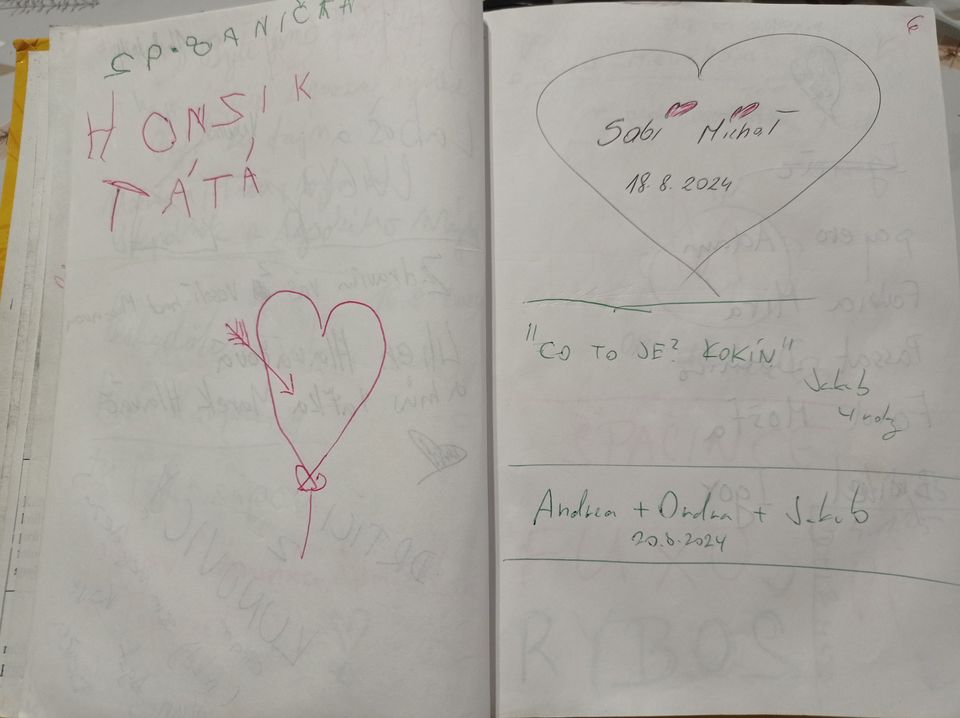 HONSÍK
TÁTÁ
6
Sabi Michal
18.8.2024
"CO TO JE? KOKÍN"
Jakub
4 roky
Andrea + Ondra + Jakub
20.8.2024